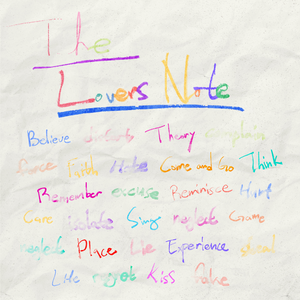 The
Lovers Note
Believe distort Theory complain
Dance Faith Hate Come and Go Think
Remember excuse Reminisce Hurt
Care isolate Sing neglect Game
neglect Place Lie Experience
Life regret Kiss